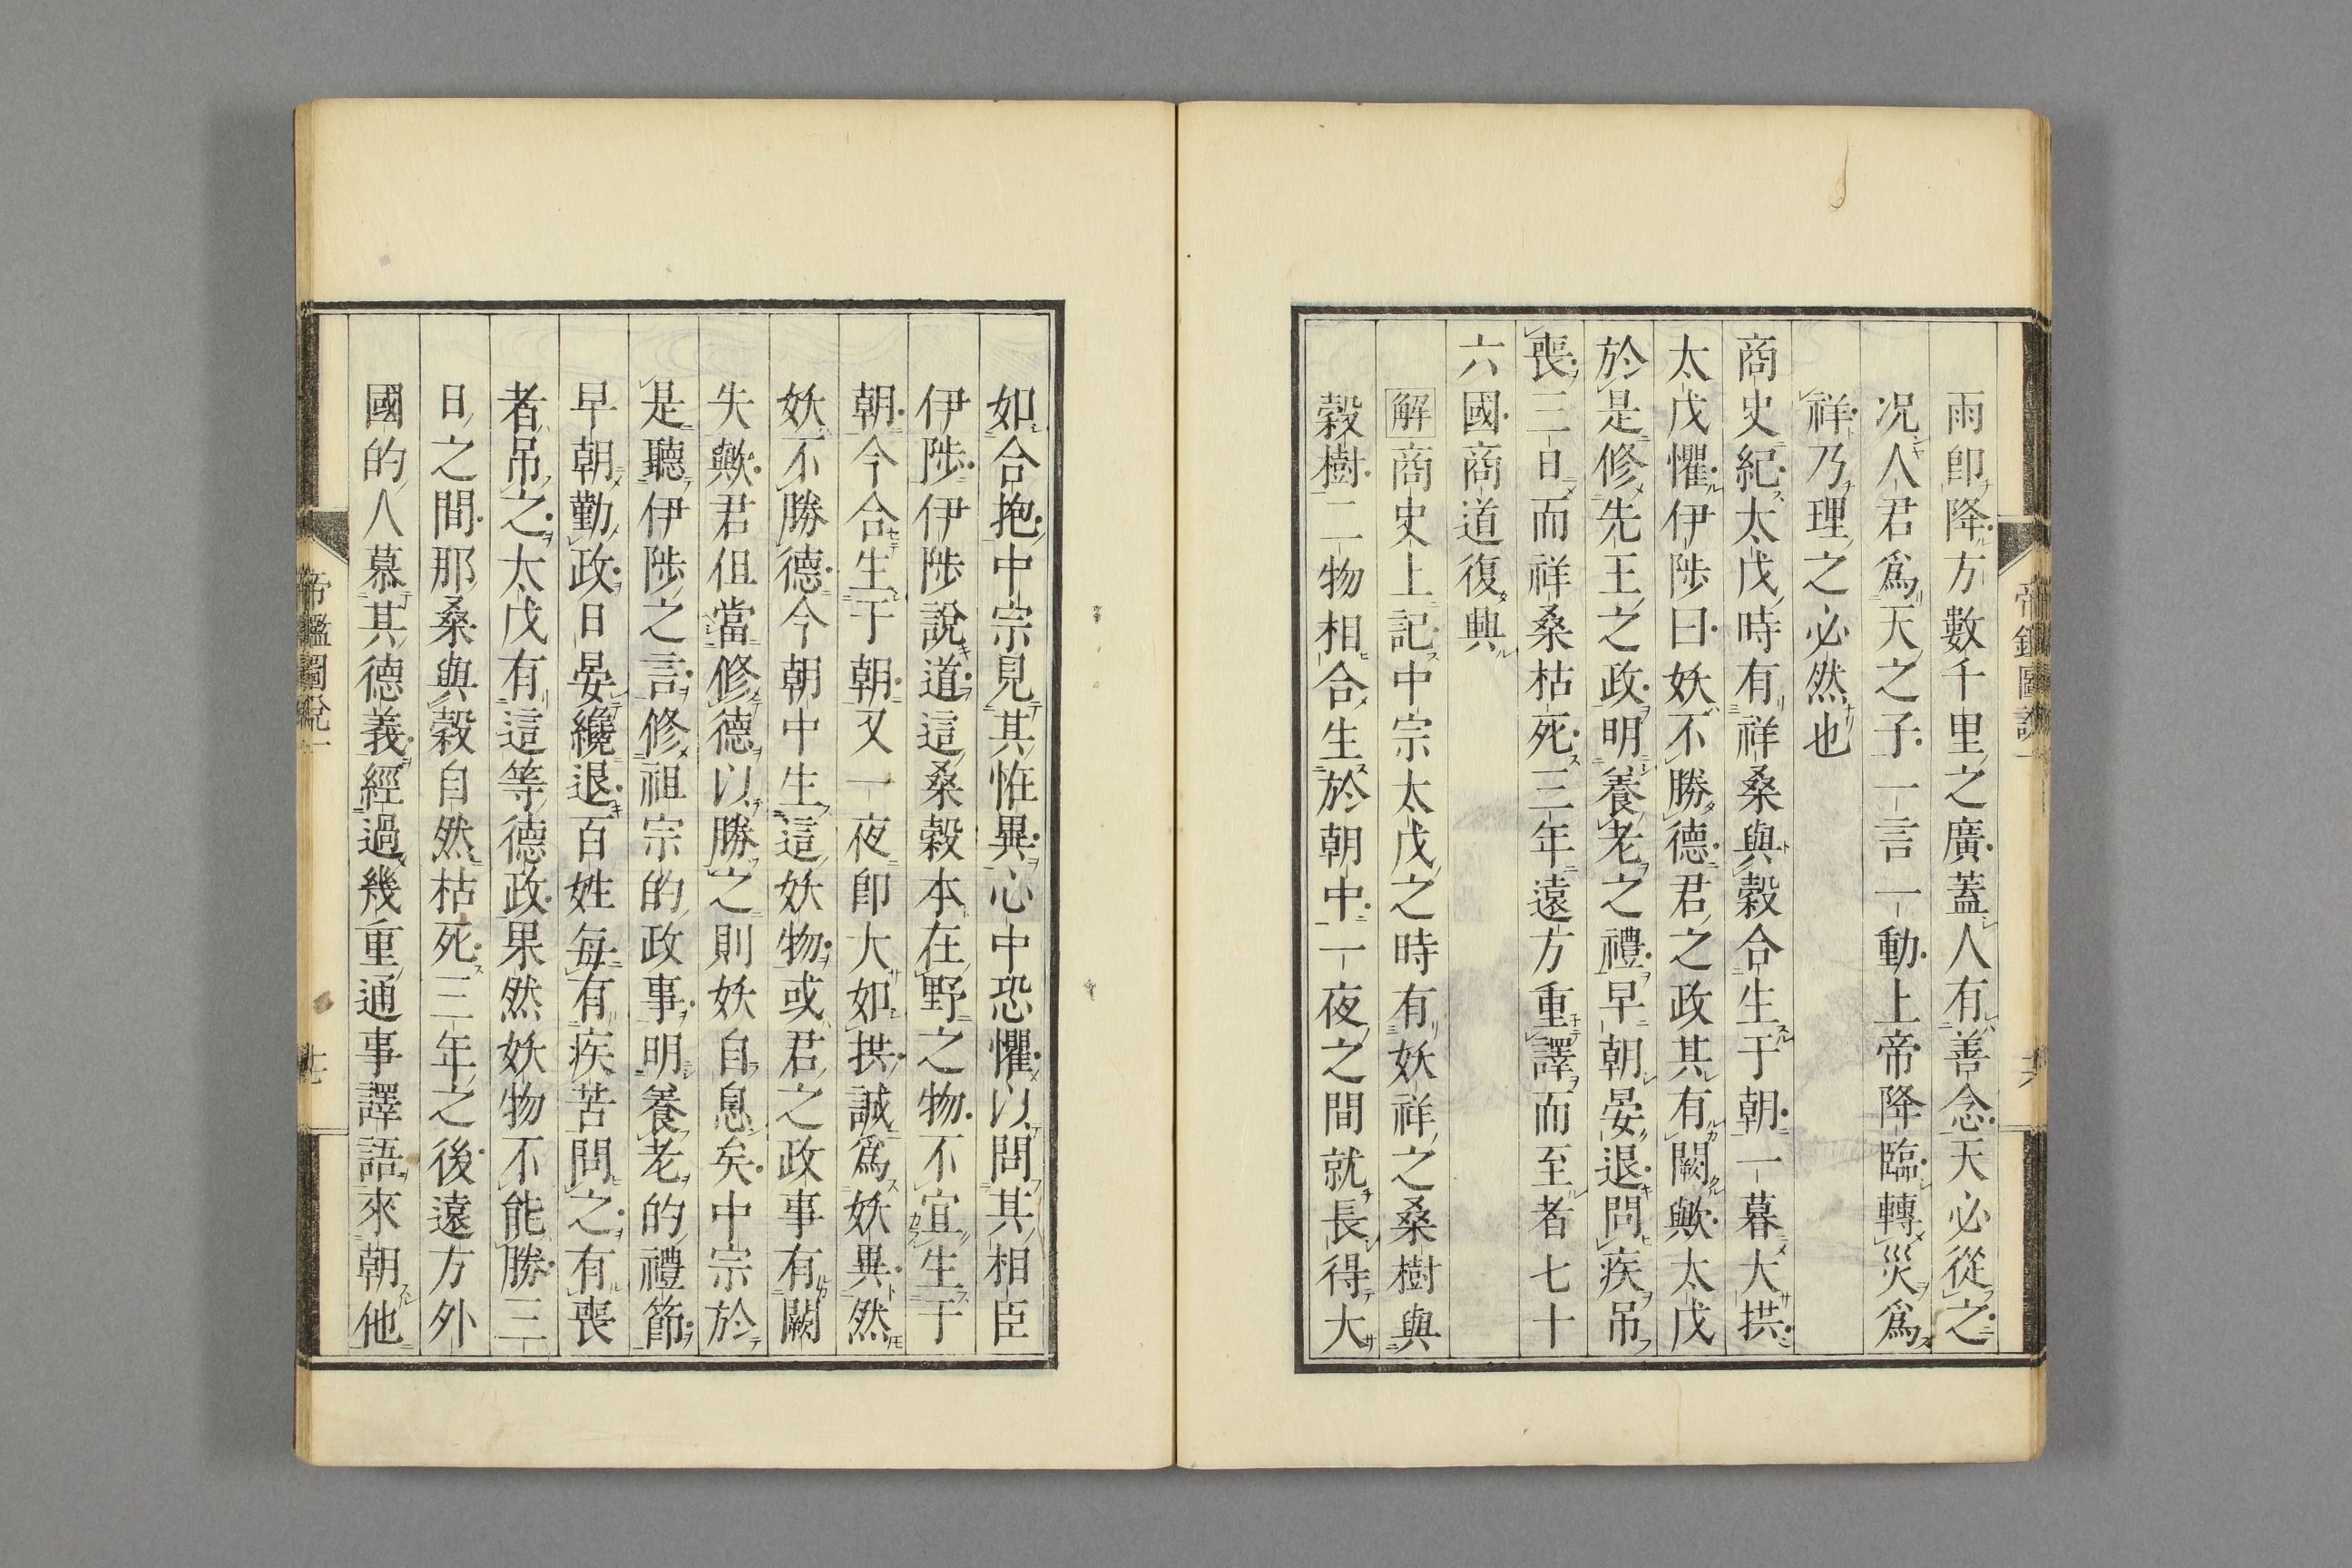 雨卽降方數千里之廣蓋人有善念天必從之
况人君爲天之子一言一動上帝降臨轉災爲
祥乃理之必然也
商史紀太戊時有祥桑與榖合生于朝一暮大拱
太戊懼伊陟曰妖不勝德君之政其有闕歟太戊
於是修先王之政明養老之禮早朝晏退問疾吊
喪三日而祥桑枯死三年遠方重譯而至者七十
六國商道復興
解商史上記中宗太戊之時有妖祥之桑樹與
榖樹二物相合生於朝中一夜之間就長得大
如合抱中宗見其恠異心中恐懼以問其相臣
伊陟伊陟說道這桑榖本在野之物不宜生于
朝今合生于朝又一夜卽大如拱誠爲妖異然
妖不勝德今朝中生這妖物或君之政事有闕
失歟君但當修德以勝之則妖自息矣中宗於
是聽伊陟之言修祖宗的政事明養老的禮節
早朝勤政日晏纔退百姓每有疾苦問之有喪
者吊之太戊有這等德政果然妖物不能勝三
日之間那桑與榖自然枯死三年之後遠方外
國的人慕其德義經過幾重通事譯語來朝他
帝鑑圖說一
七